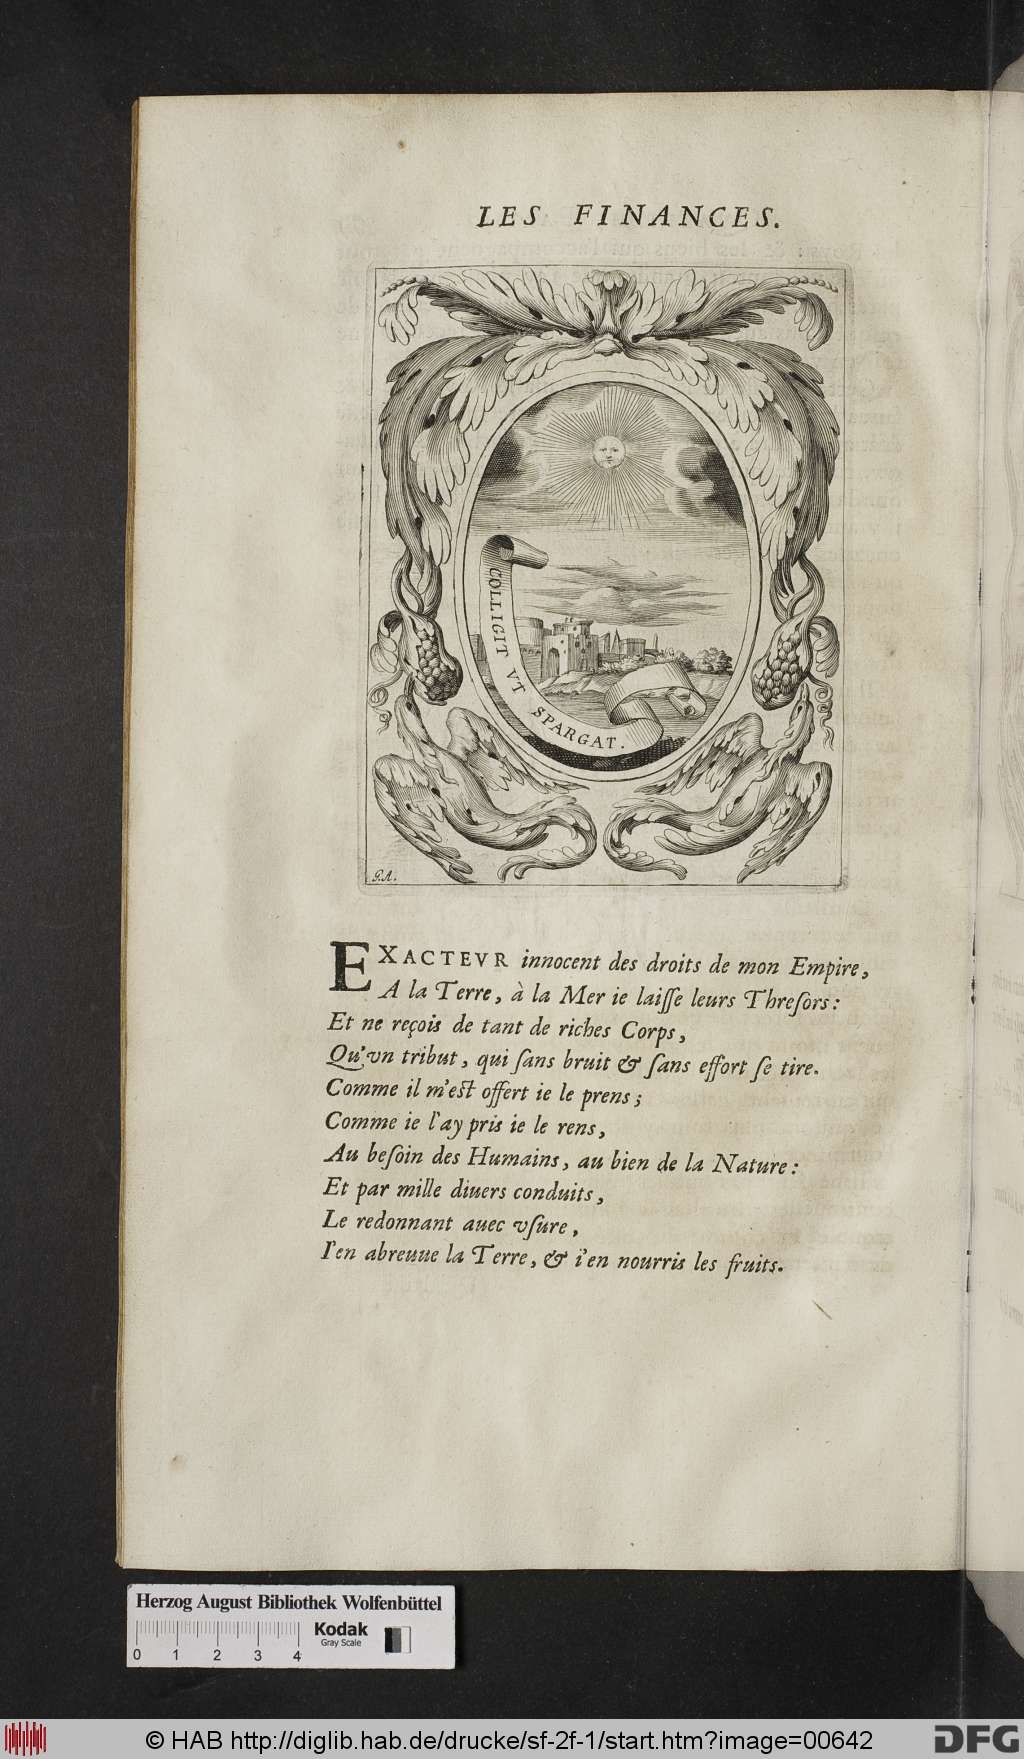 LES FINANCES.
COLLIGIT VT SPARGAT.
P.A.
EXACTEVR innocent des droits de mon Empire,
A la Terre, à la Mer ie laiſſe leurs Threſors:
Et ne reçois de tant de riches Corps,
Qu'vn tribut, qui ſans bruit & ſans effort ſe tire.
Comme il m'eſt offert ie le prens;
Comme ie l'ay pris ie le rens,
Au beſoin des Humains, au bien de la Nature:
Et par mille diuers conduits,
Le redonnant auec vſure,
I'en abreuue la Terre, & i'en nourris les fruits.
Herzog August Bibliothek Wolfenbüttel
Kodak
Gray Scale
0 1 2 3 4
© HAB http://diglib.hab.de/drucke/sf-2f-1/start.htm?image=00642
DFG